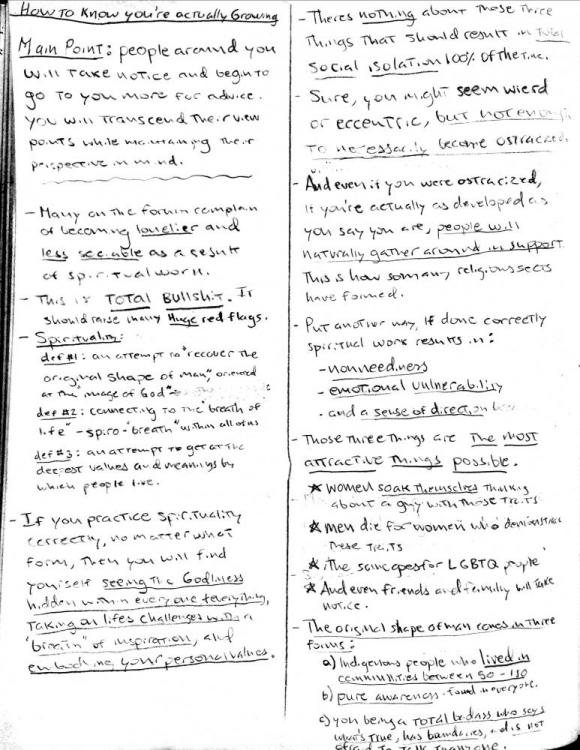 How to Know you're actually Growing
Main Point: people around you
will take notice and begin to
go to you more for advice.
you will transcend their view
points while maintaining their
perspective in mind.
- Many on the forum complain
of becoming lonelier and
less sociable as a result
of spiritual work.
- This is Total Bullshit. It
should raise many Huge red flags.
- Spirituality:
def #1: an attempt to "recover the
original shape of man," oriented
at the image of God"
def #2: connecting to the "breath of
life" - spiro - "breath" within all of us
def #3: an attempt to get at the
deepest values and meanings by
which people live.
- If you practice spirituality
correctly, no matter what
form, then you will find
yourself seeing the Godliness
hidden within everyone & everything,
taking on lifes challenges with a
"breath" of inspiration, and
embodying your personal values.
- Theres nothing about those three
things that should result in total
social isolation 100% of the time.
- Sure, you might seem wierd
or eccentric, but not enough
to necessarily become ostracized.
- And even if you were ostracized,
if you're actually as developed as
you say you are, people will
naturally gather around in support
This is how so many religious sects
have formed.
- Put another way, if done correctly
spiritual work results in:
- nonneediness
- emotional vulnerability
- and a sense of direction
- Those three things are the most
attractive things possible.
★ women soak themselves thinking
about a guy with those traits
★ men die for women who demonstrate
these traits
★ the same goes for LGBTQ people
★ And even friends and family will take
notice.
- The original shape of man comes in three
forms:
a) Indigenous people who lived in
communities between 50 - 150
b) pure awareness - found in everyone.
c) you being a total badass who says
what's true, has boundaries, & is not
afraid to talk